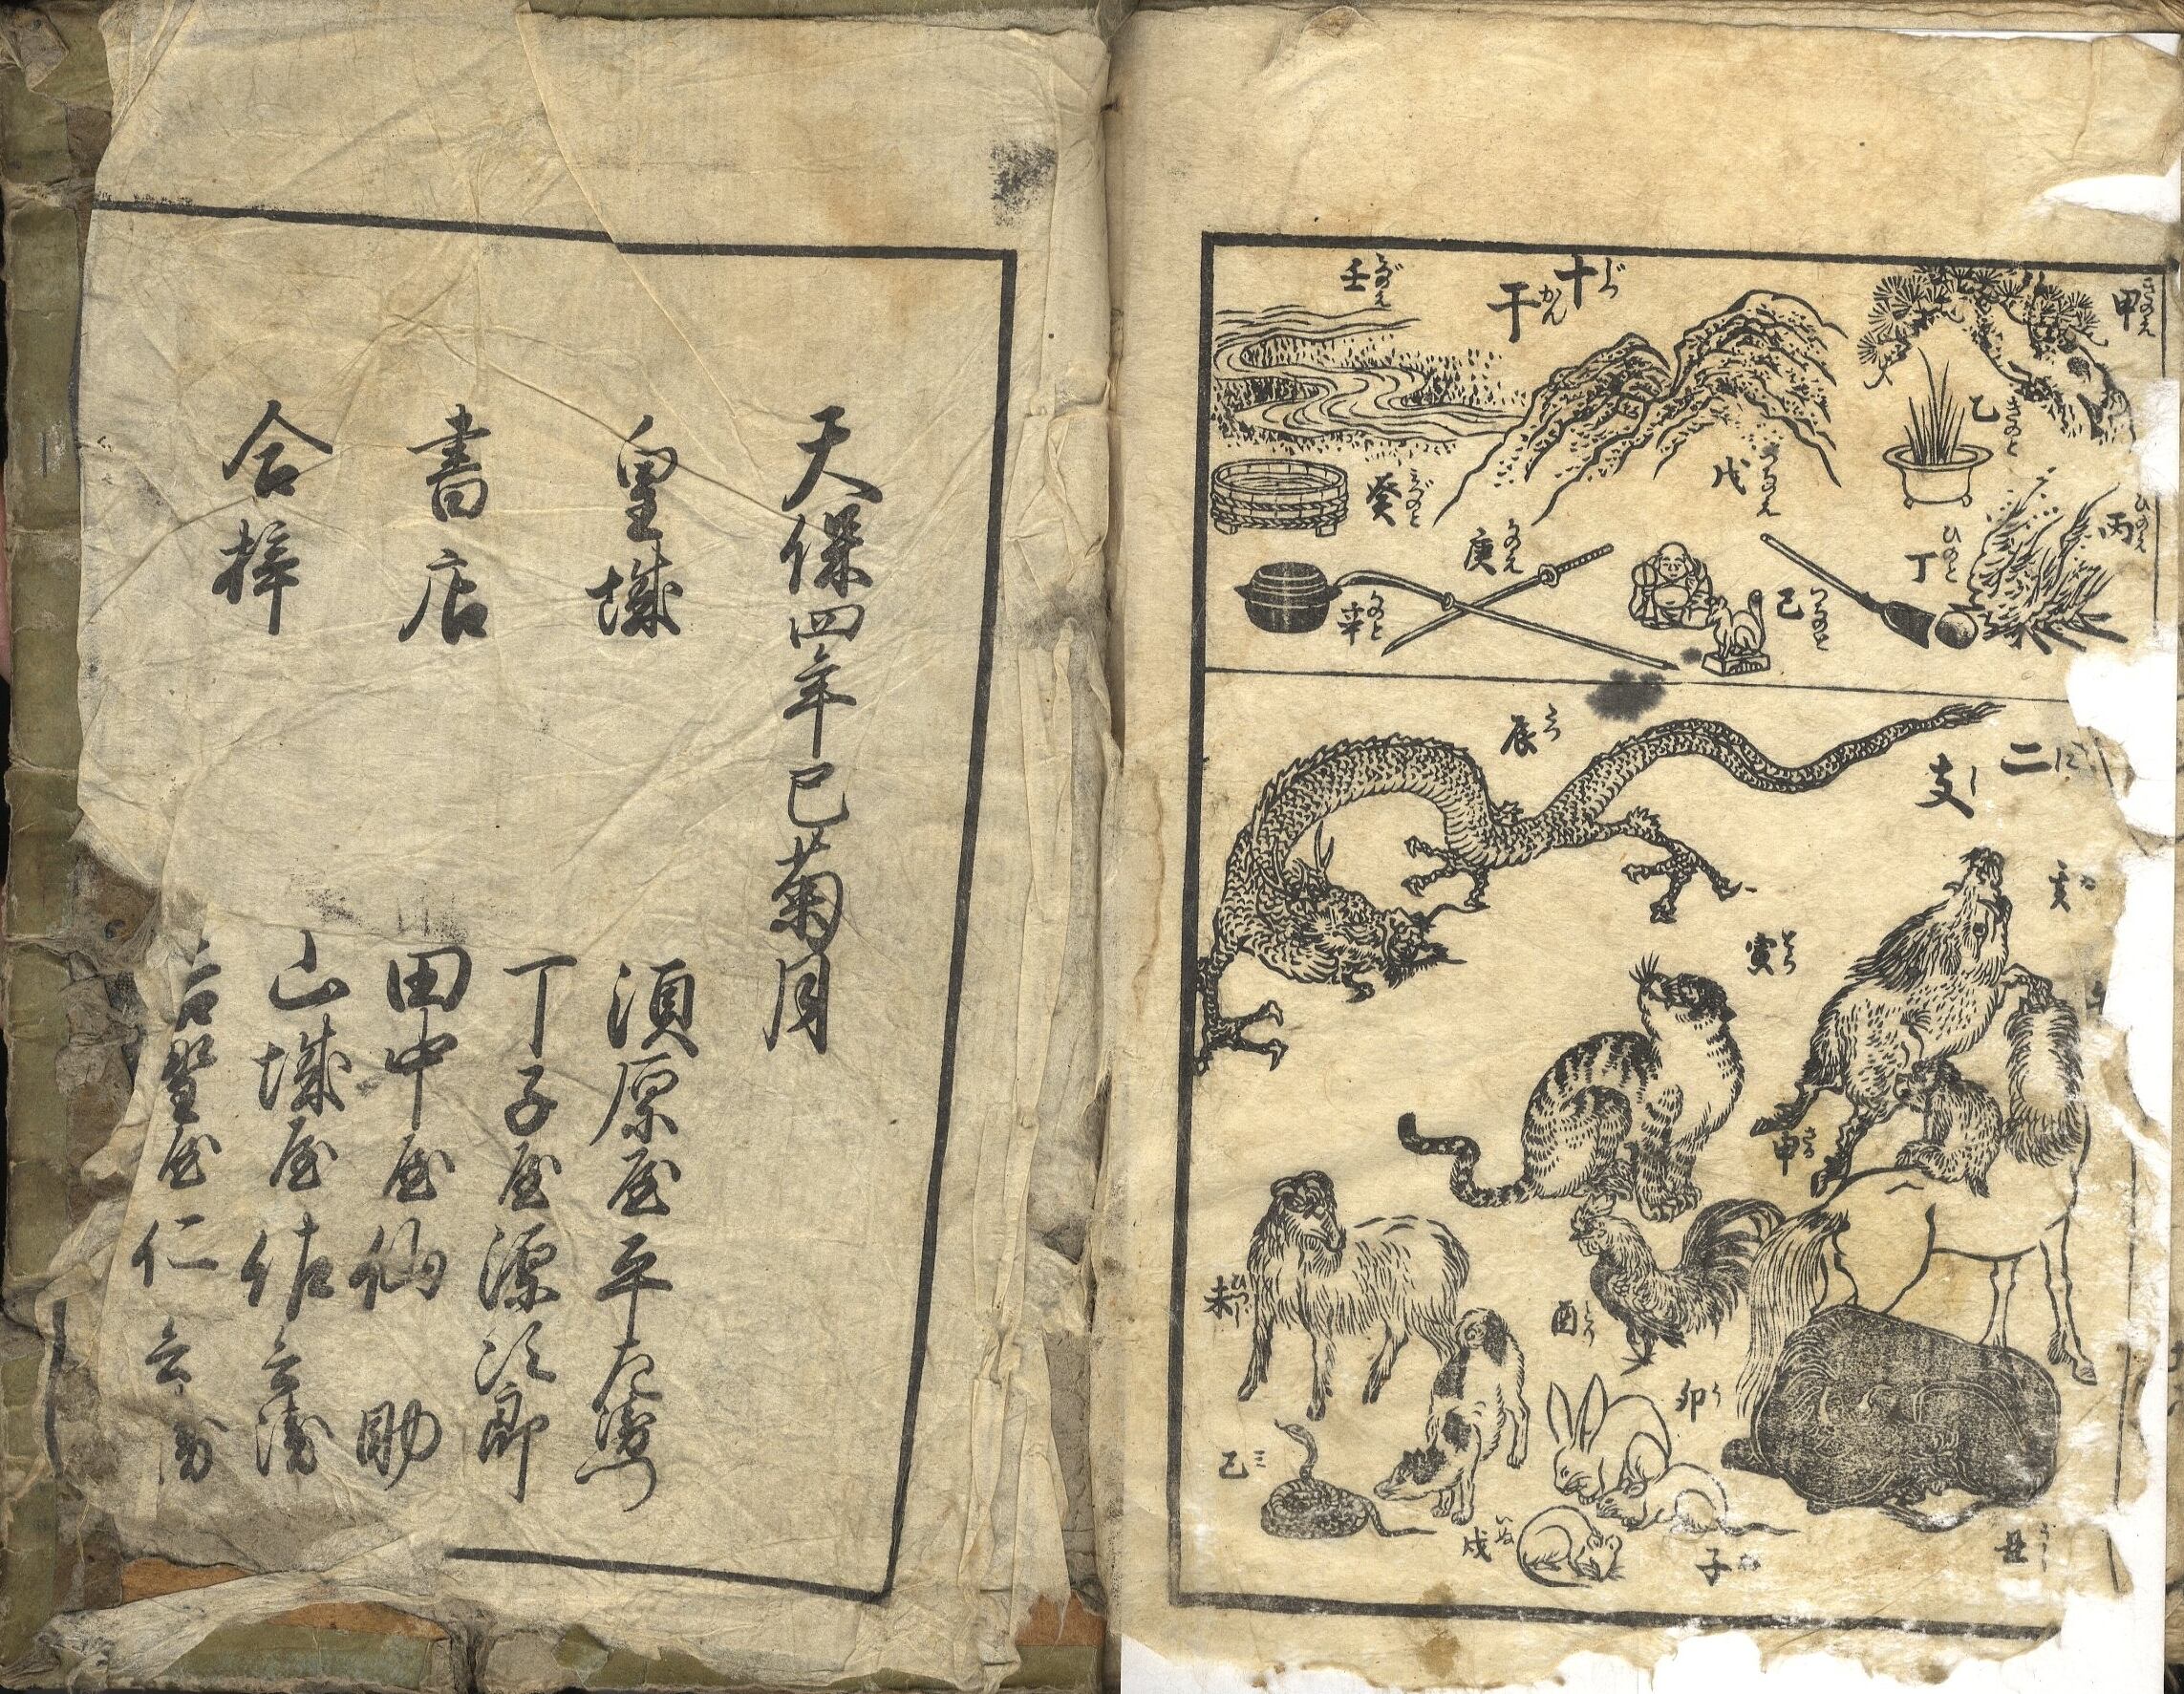 甲 きのえ
乙 きのと
丙 ひのえ
丁 ひのと
十干 じつかん
戊 つちのえ
己 つちのと
庚 かのえ
辛 かのと
壬 みづのえ
癸 みづのと
二支 にし
亥 ゐ
辰 たつ
寅 とら
申 さる
酉 とり
未 ひつじ
卯 う
丑 うし
子 ね
戌 いぬ
巳 ミ
天保四年巳菊月
皇城
書店
合梓
須原屋平左衛門
丁子屋源次郎
田中屋仙助
山城屋佐兵衛
吉埜屋仁兵衛